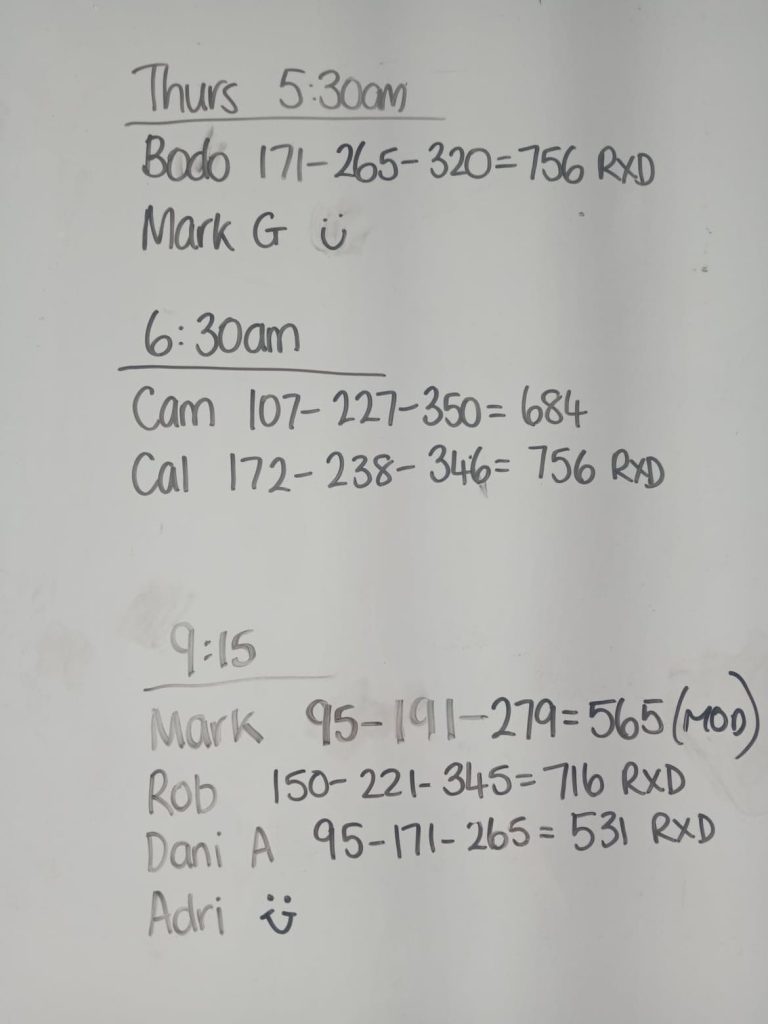 Thurs 5:30am
Bodo 171-265-320=756 RXD
Mark G ü
6:30am
Cam 107-227-350=684
Cal 172-238-346=756 RXD
9:15
Mark 95-191-279=565 (MOD)
Rob 150-221-345=716 RXD
Dani A 95-171-265=531 RXD
Adri ü